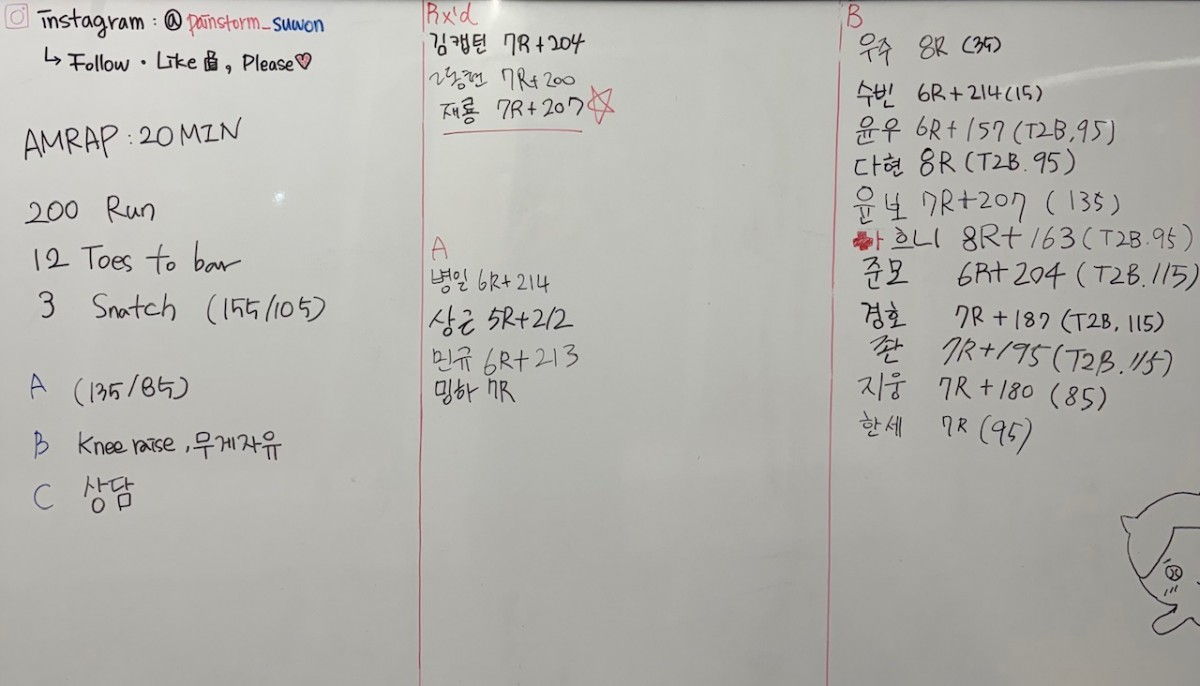 instagram : @painstorm_suwon
↳ Follow · Like 👍, Please♡
AMRAP : 20 MIN
200 Run
12 Toes to bar
3 Snatch (155/105)
A (135/85)
B Knee raise, 무게자유
C 상담
Rx'd
김캡턴 7R+204
7R+200
재룡 7R+207☆
A
병일 6R+214
상근 5R+212
민규 6R+213
밍하 7R
B
우주 8R (35)
수빈 6R+214(15)
윤우 6R+157 (T2B.95)
다현 8R (T2B.95)
윤보 7R+207 (135)
흐니 8R+163 (T2B.95)
준모 6R+204 (T2B.115)
경호 7R+187 (T2B, 115)
좐 7R+195 (T2B.115)
지웅 7R+180 (85)
한세 7R (95)